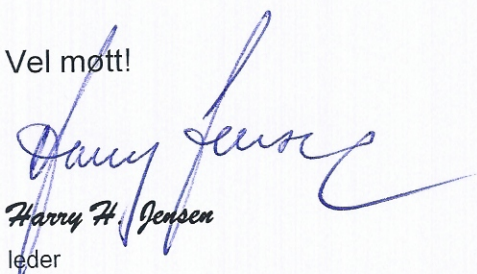 Vel møtt!
Harry Jensen
Harry H. Jensen
leder